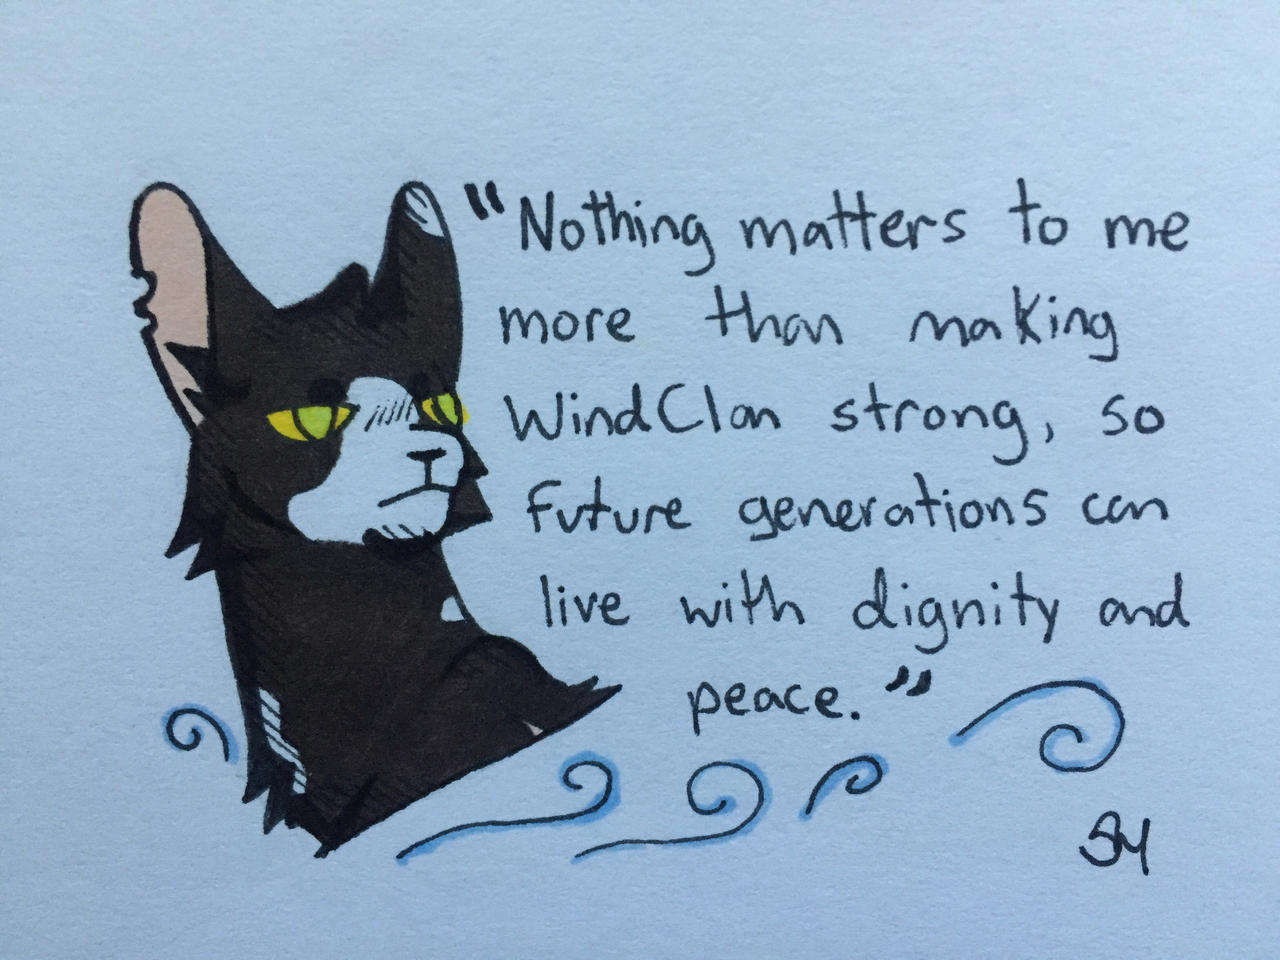 "Nothing matters to me
more than making
WindClan strong, so
future generations can
live with dignity and
peace."
SM